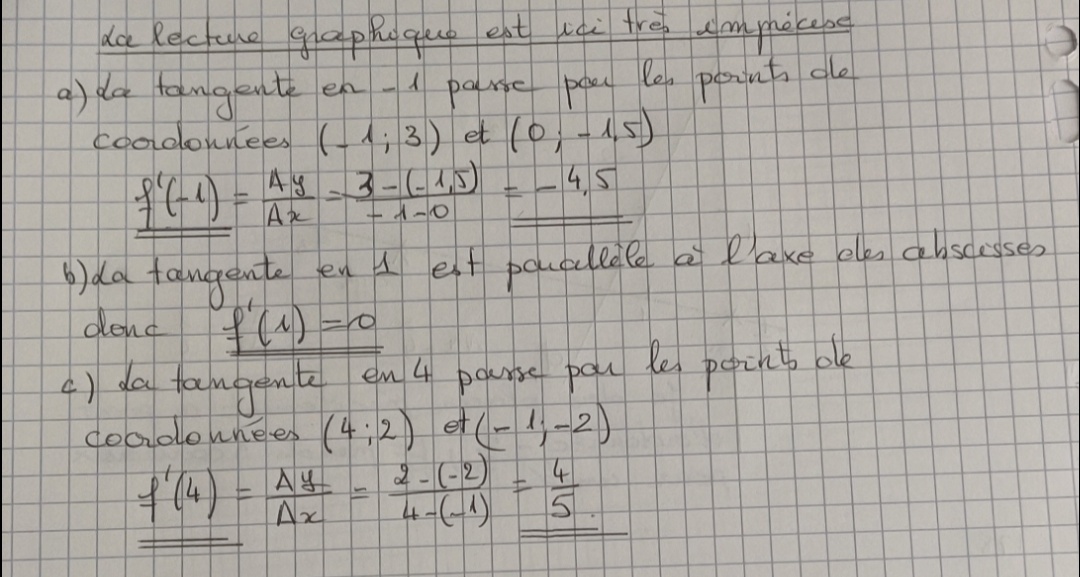 La lecture graphique est ici très imprécise
a) La tangente en -1 passe par les points de
coordonnées (-1 ; 3) et (0 ; -1,5)
f'(-1) = Δy/Δx = 3-(-1,5)/-1-0 = -4,5
b) La tangente en 1 est parallèle à l'axe des abscisses
donc f'(1) = 0
c) La tangente en 4 passe par les points de
coordonnées (4 ; 2) et (-1 ; -2)
f'(4) = Δy/Δx = 2-(-2)/4-(-1) = 4/5.